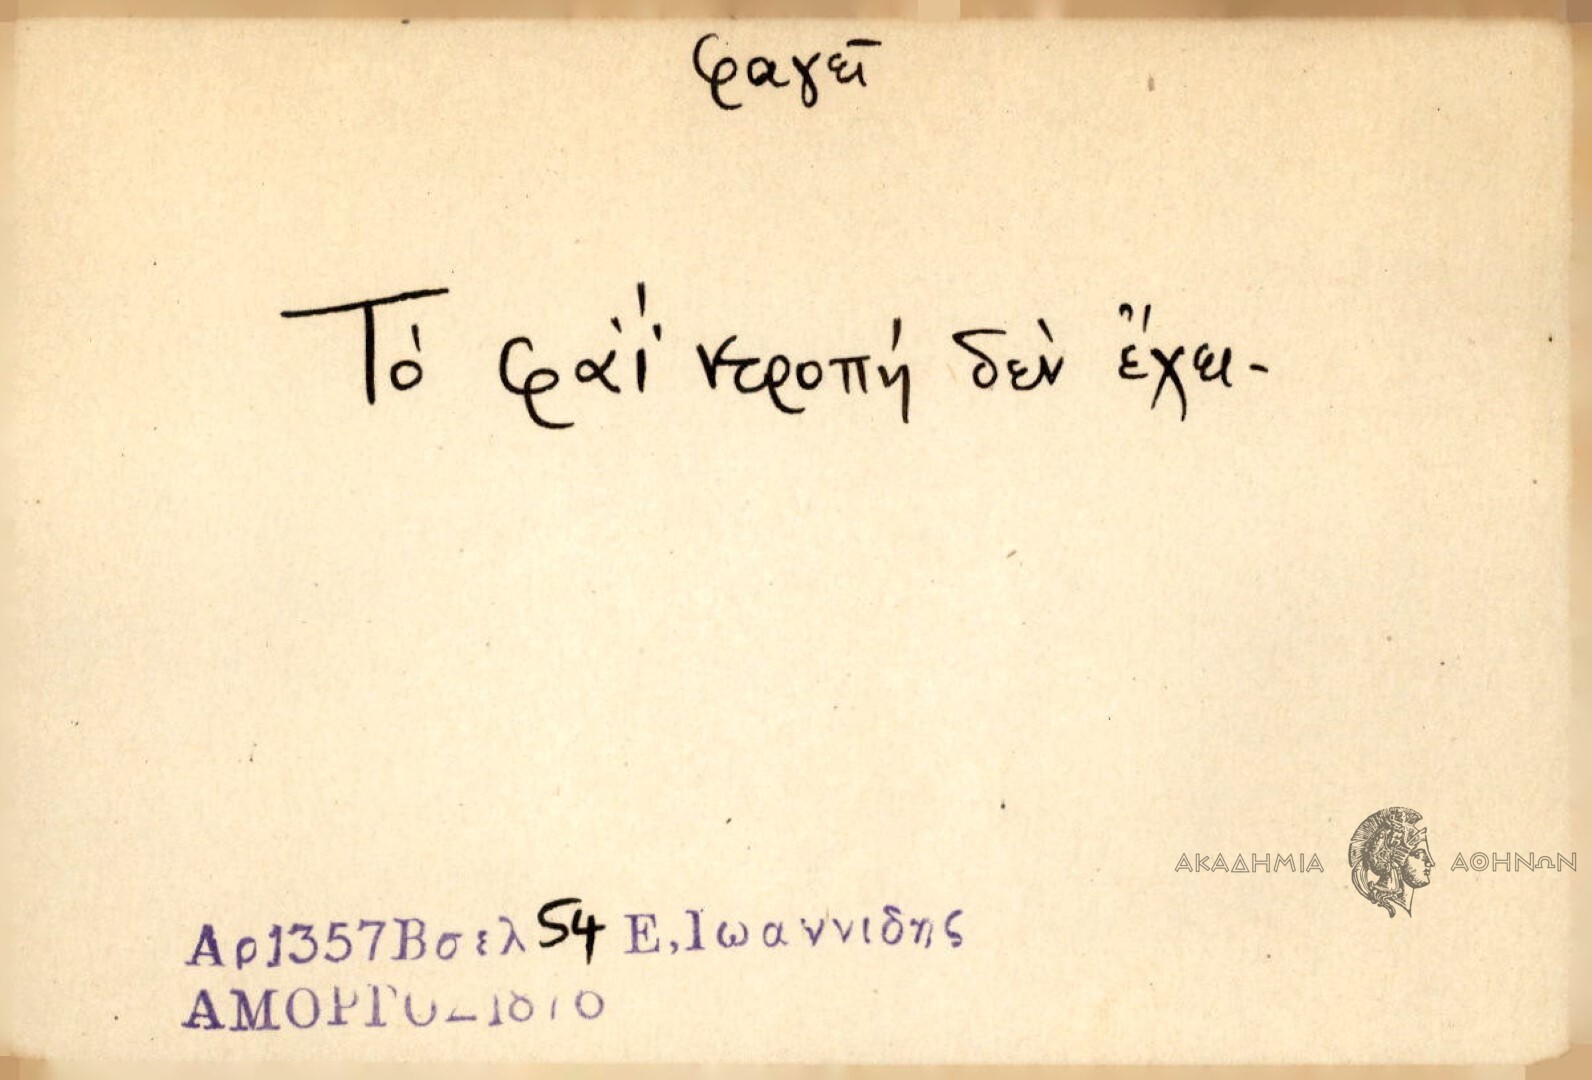 φαγεῖ
Τὸ φαΐ ντροπὴ δὲν ἔχει-
ΑΚΑΔΗΜΙΑ ΑΘΗΝΩΝ
Αρ1357Βσελ 54 Ε,Ιωαννιδης